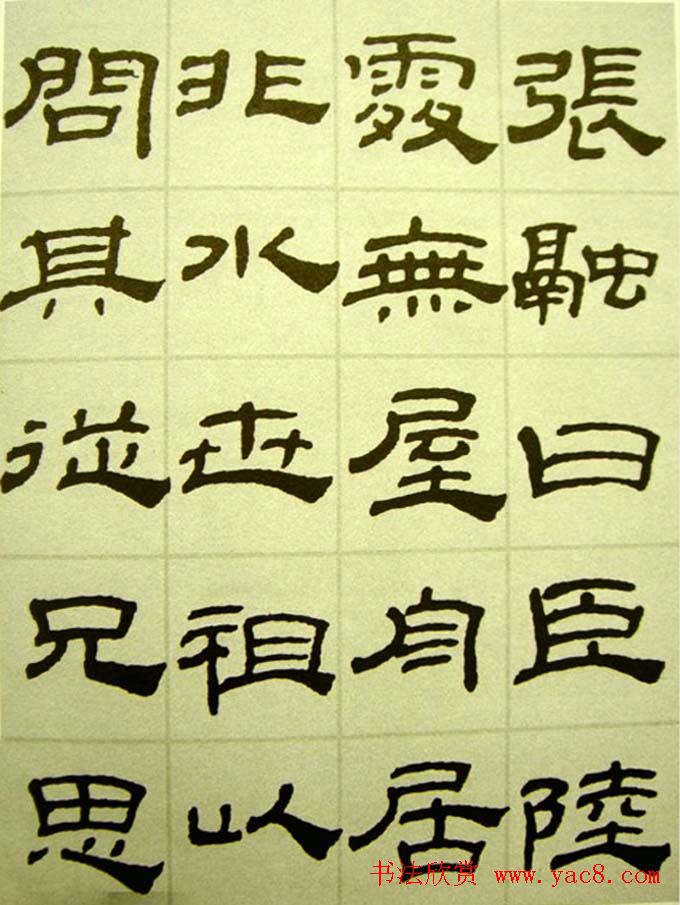 張融曰臣陸
處無屋舟居
非水世祖以
問其從兄思
书法欣赏 www.yac8.com